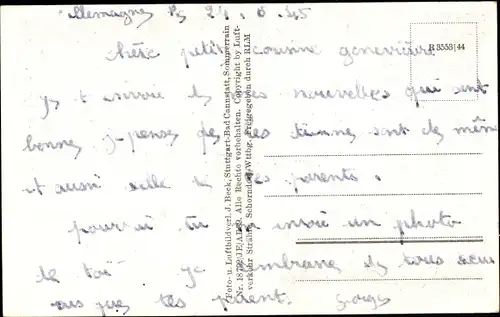 Allemagne le 24.6.45
chère petite cousine geneviève
je t envoie des nouvelles qui sont
bonnes j-pense que les tiennes sont de même
et aussi celle de tes parents.
pourrai tu m envoié un photo
de toi je embrasse
tes parent. Georges
R 3553|44
Foto- u. Luftbildverl. J. Beck, Stuttgart-Bad Cannstatt, Sommerrain
Alle Rechte vorbehalten. Copyright by Luft-
verkehr Strähle, Schorndorf-Wttbg. Freigegeben durch RLM